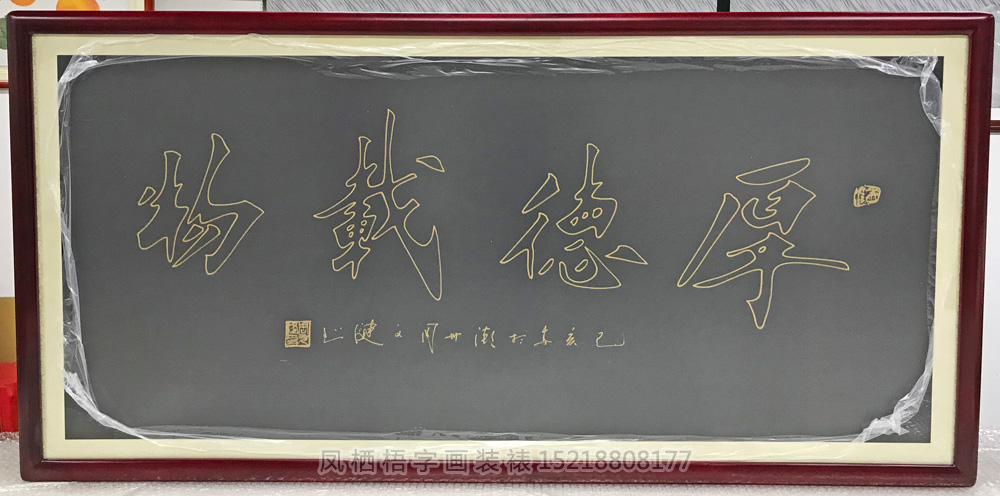 厚德載物
己亥春於潮州周文健書
凤栖梧字画装裱15218808177